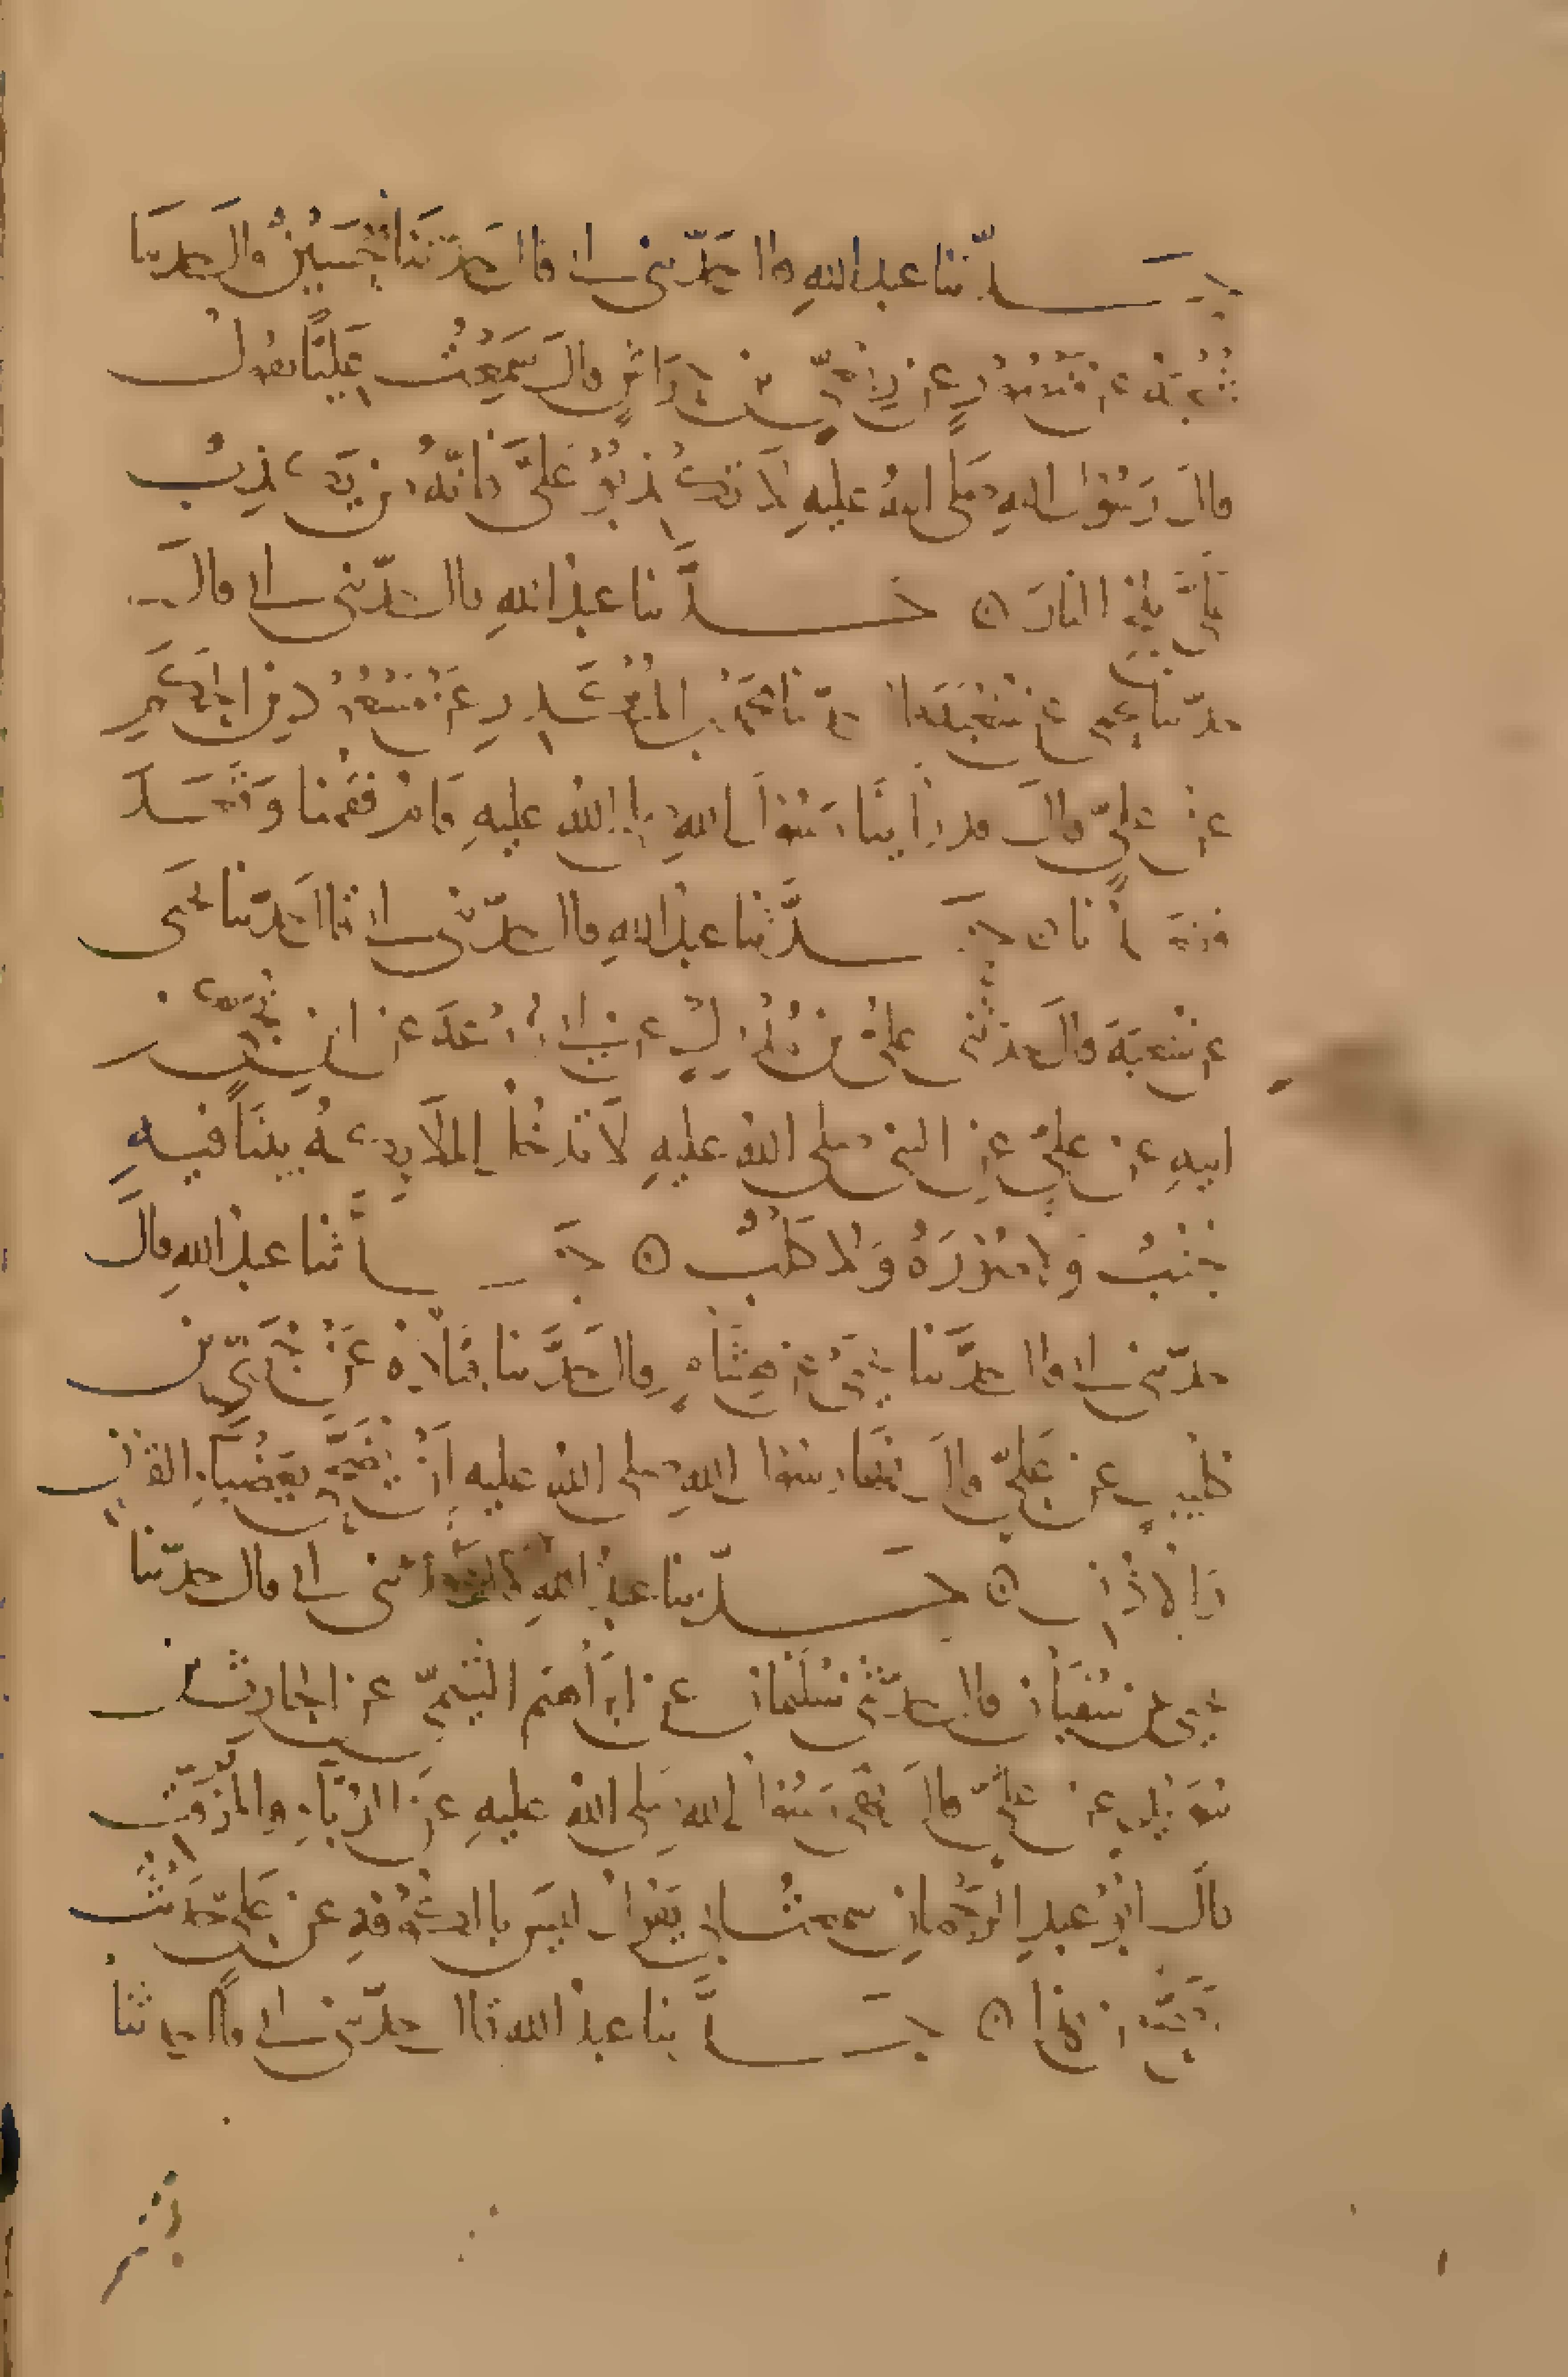 حدثنا عبد الله قال حدثني ابي قال حدثنا حسين قال حدثنا
شعبة عن منصور عن ربعي بن حراش قال سمعت عليا يقول
قال رسول الله صلى الله عليه لا تكذبوا علي فانه من يكذب
علي يلج النار حدثنا عبد الله قال حدثني ابي قال
حدثنا يحيى عن شعبة قال حدثنا محمد بن المنكدر عن مسعود بن الحكم
عن علي قال قد راينا رسول الله صلى الله عليه قام فقمنا وقعد
فقعدنا حدثنا عبد الله قال حدثني ابي قال حدثنا يحيى
عن شعبة قال حدثني علي بن مدرك عن ابي زرعة عن ابن نجي عن
ابيه عن علي عن النبي صلى الله عليه لا تدخل الملائكة بيتا فيه
جنب ولا صورة ولا كلب حدثنا عبد الله قال
حدثني ابي قال حدثنا يحيى عن هشام قال حدثنا قتادة عن جري بن
كليب عن علي قال نهى رسول الله صلى الله عليه ان يضحى بعضباء القرن
والاذن حدثنا عبد الله قال حدثني ابي قال حدثنا
يحيى عن سفيان قال حدثني سليمان عن ابراهيم التيمي عن الحارث بن
سويد عن علي قال نهى رسول الله صلى الله عليه عن الدباء والمزفت
قال ابو عبد الرحمن سمعت ابي يقول ليس بالكوفة عن علي حديث
اصح من هذا حدثنا عبد الله قال حدثني ابي قال حدثنا